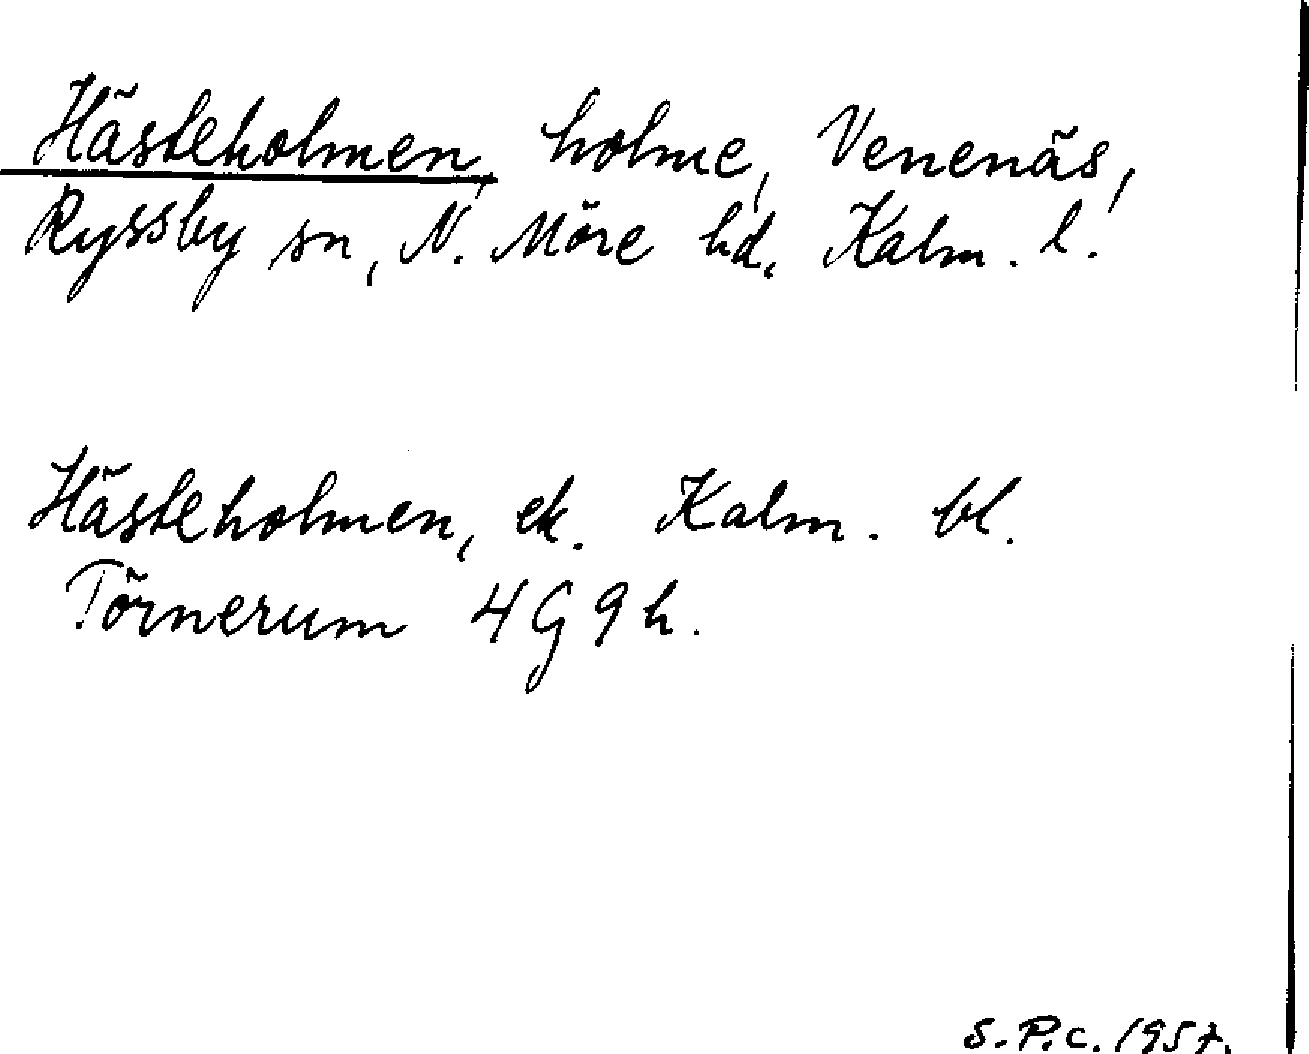 Hästeholmen, holme, Venenäs,
Ryssby sn, N. Möre hd, Kalm. l.
Hästeholmen, ek. Kalm. bl.
Törnerum 4G9h.
S.P.C. 1957.